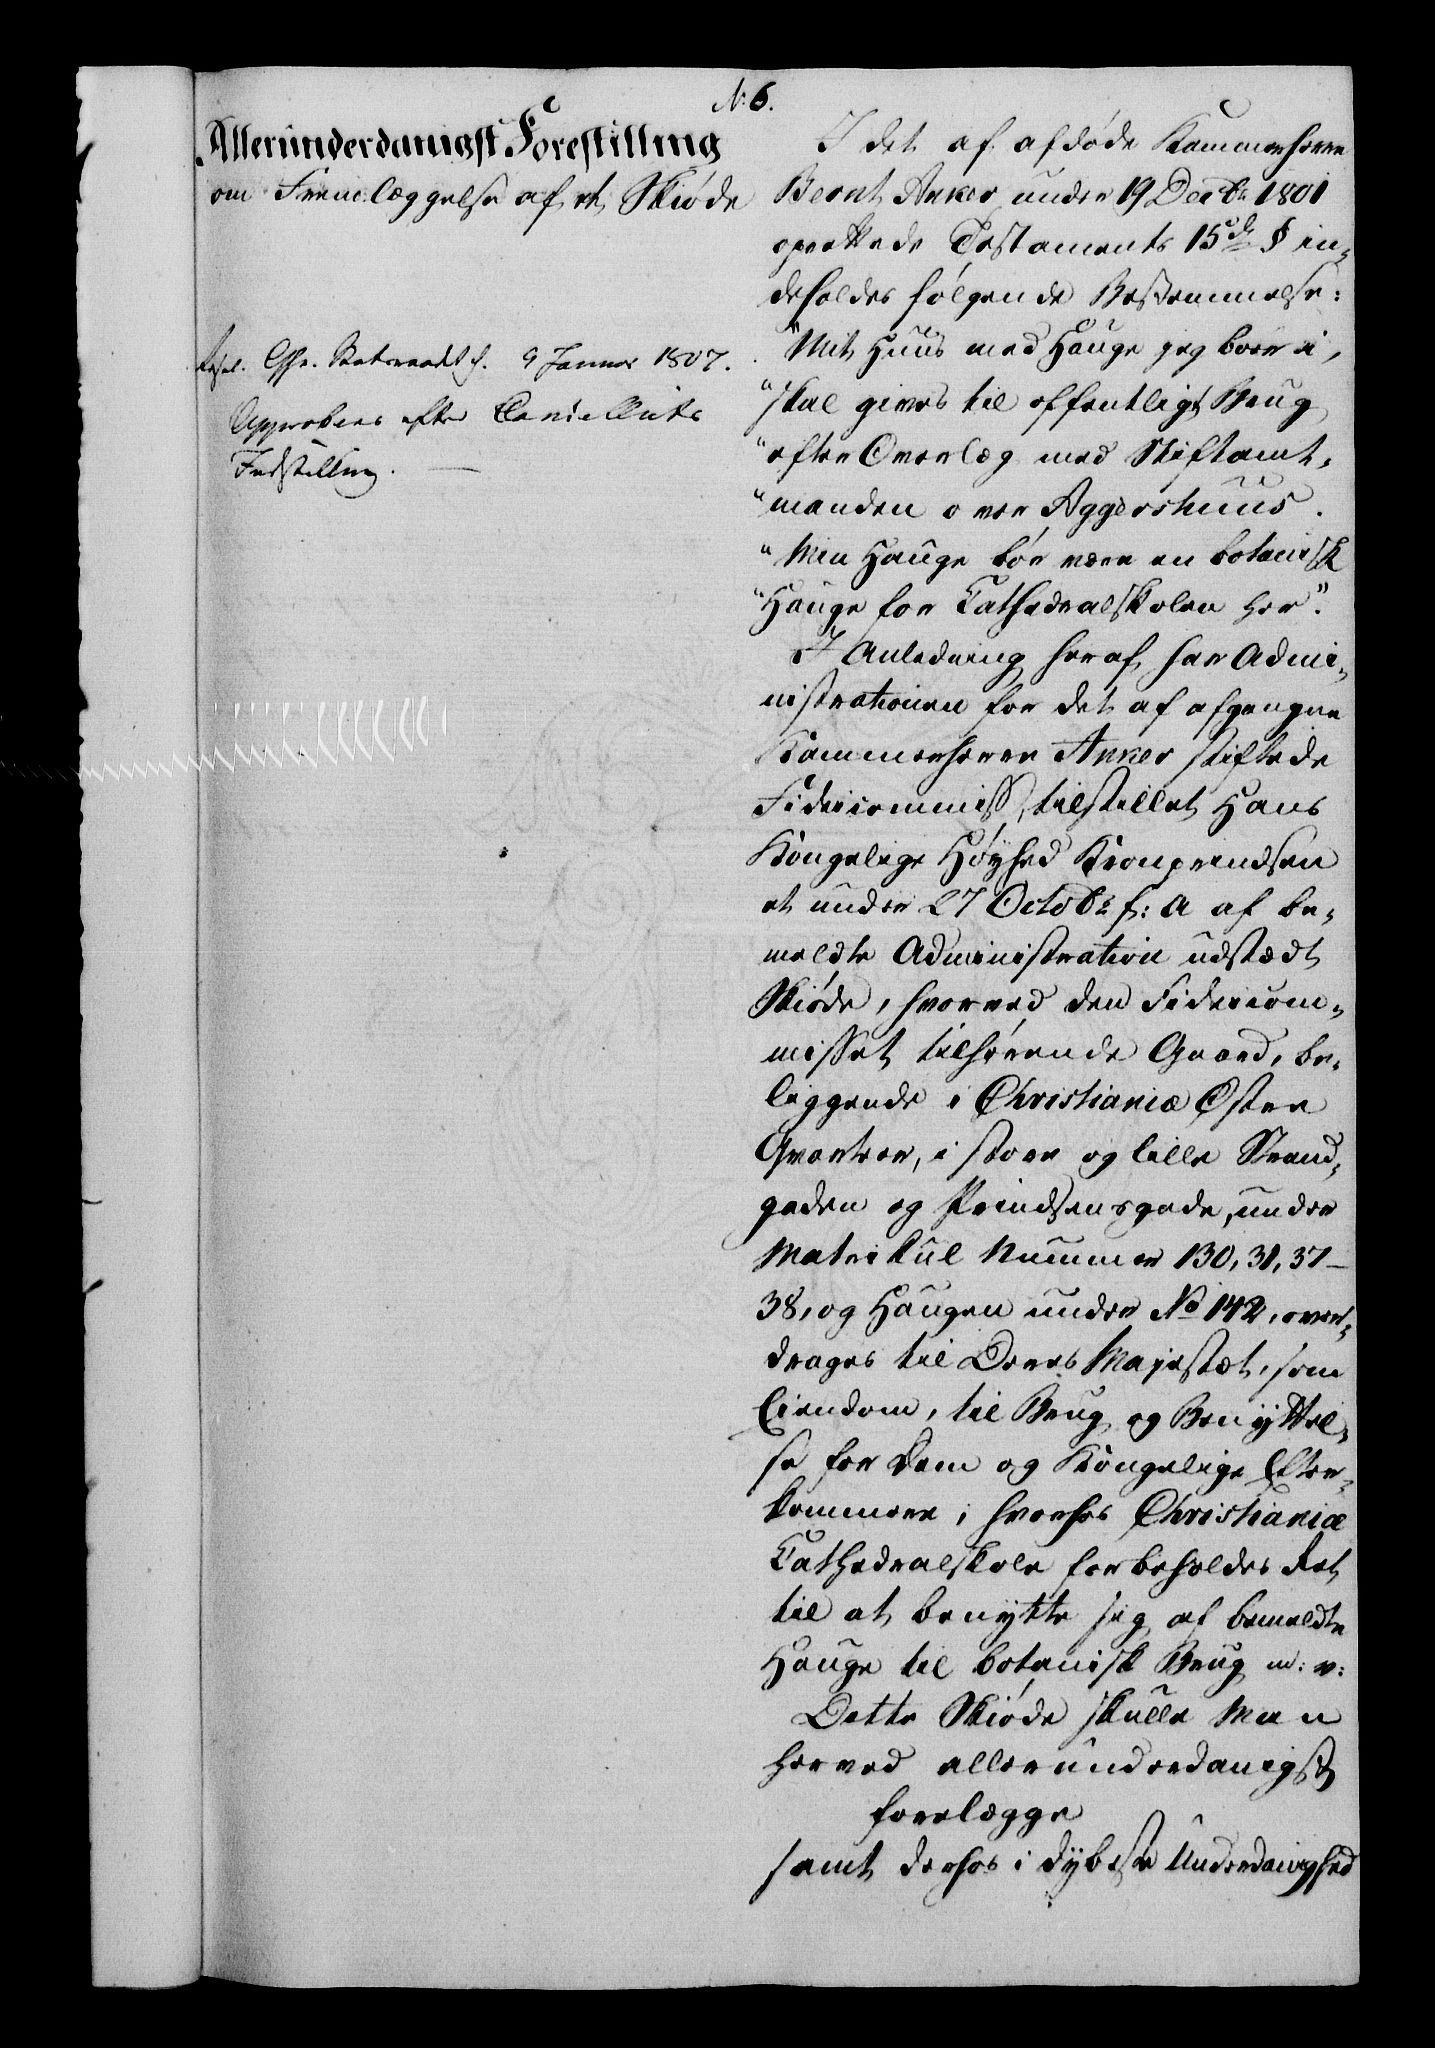 No 6.
Allerunderdanigst Forestilling
om Fremlæggelse af et Skiøde
Resol. Geh. Statsraadet d. 9 Januar 1807.
Approberes efter Cancelliets
Indstilling.
I det af afdøde Kammerherre
Bernt Anker under 19 Decbr 1801
oprettede Testaments 15de § in-
deholdes følgende Bestemmelse:
"Mit Huus med Hauge jeg boer i,
"skal gives til offentligt Brug
"efter Overlæg med Stiftamt-
"manden over Aggershuus.
"Min Hauge bør være en botanisk
"Hauge for Cathedralskolen her".
I Anledning heraf har Admi-
nistrationen for det af afgangne
Kammerherre Anker stiftede
Fideicommiss, tilstillet Hans
Kongelige Høyhed Kronprindsen
et under 27 Octobr f: A af be-
meldte Administration udstædt
Skiøde, hvorved den Fideicom-
misset tilhørende Gaard, be-
liggende i Christianiæ Øster
Qvarteer, i store og lille Strand-
gaden og Prindsensgade, under
Matrikul Nummer 130, 31, 37-
38, og Haugen under No 142, over-
drages til Deres Majestæt, som
Eiendom, til Brug og Benyttel-
se for Dem og Kongelige Efter-
kommere; hvorhos Christianiæ
Cathedralskole forbeholdes Ret
til at benytte sig af bemeldte
Hauge til botanisk Brug m: v:
Dette Skiøde skulle Man
herved allerunderdanigst
forelægge
samt derhos i dybeste Underdanighed